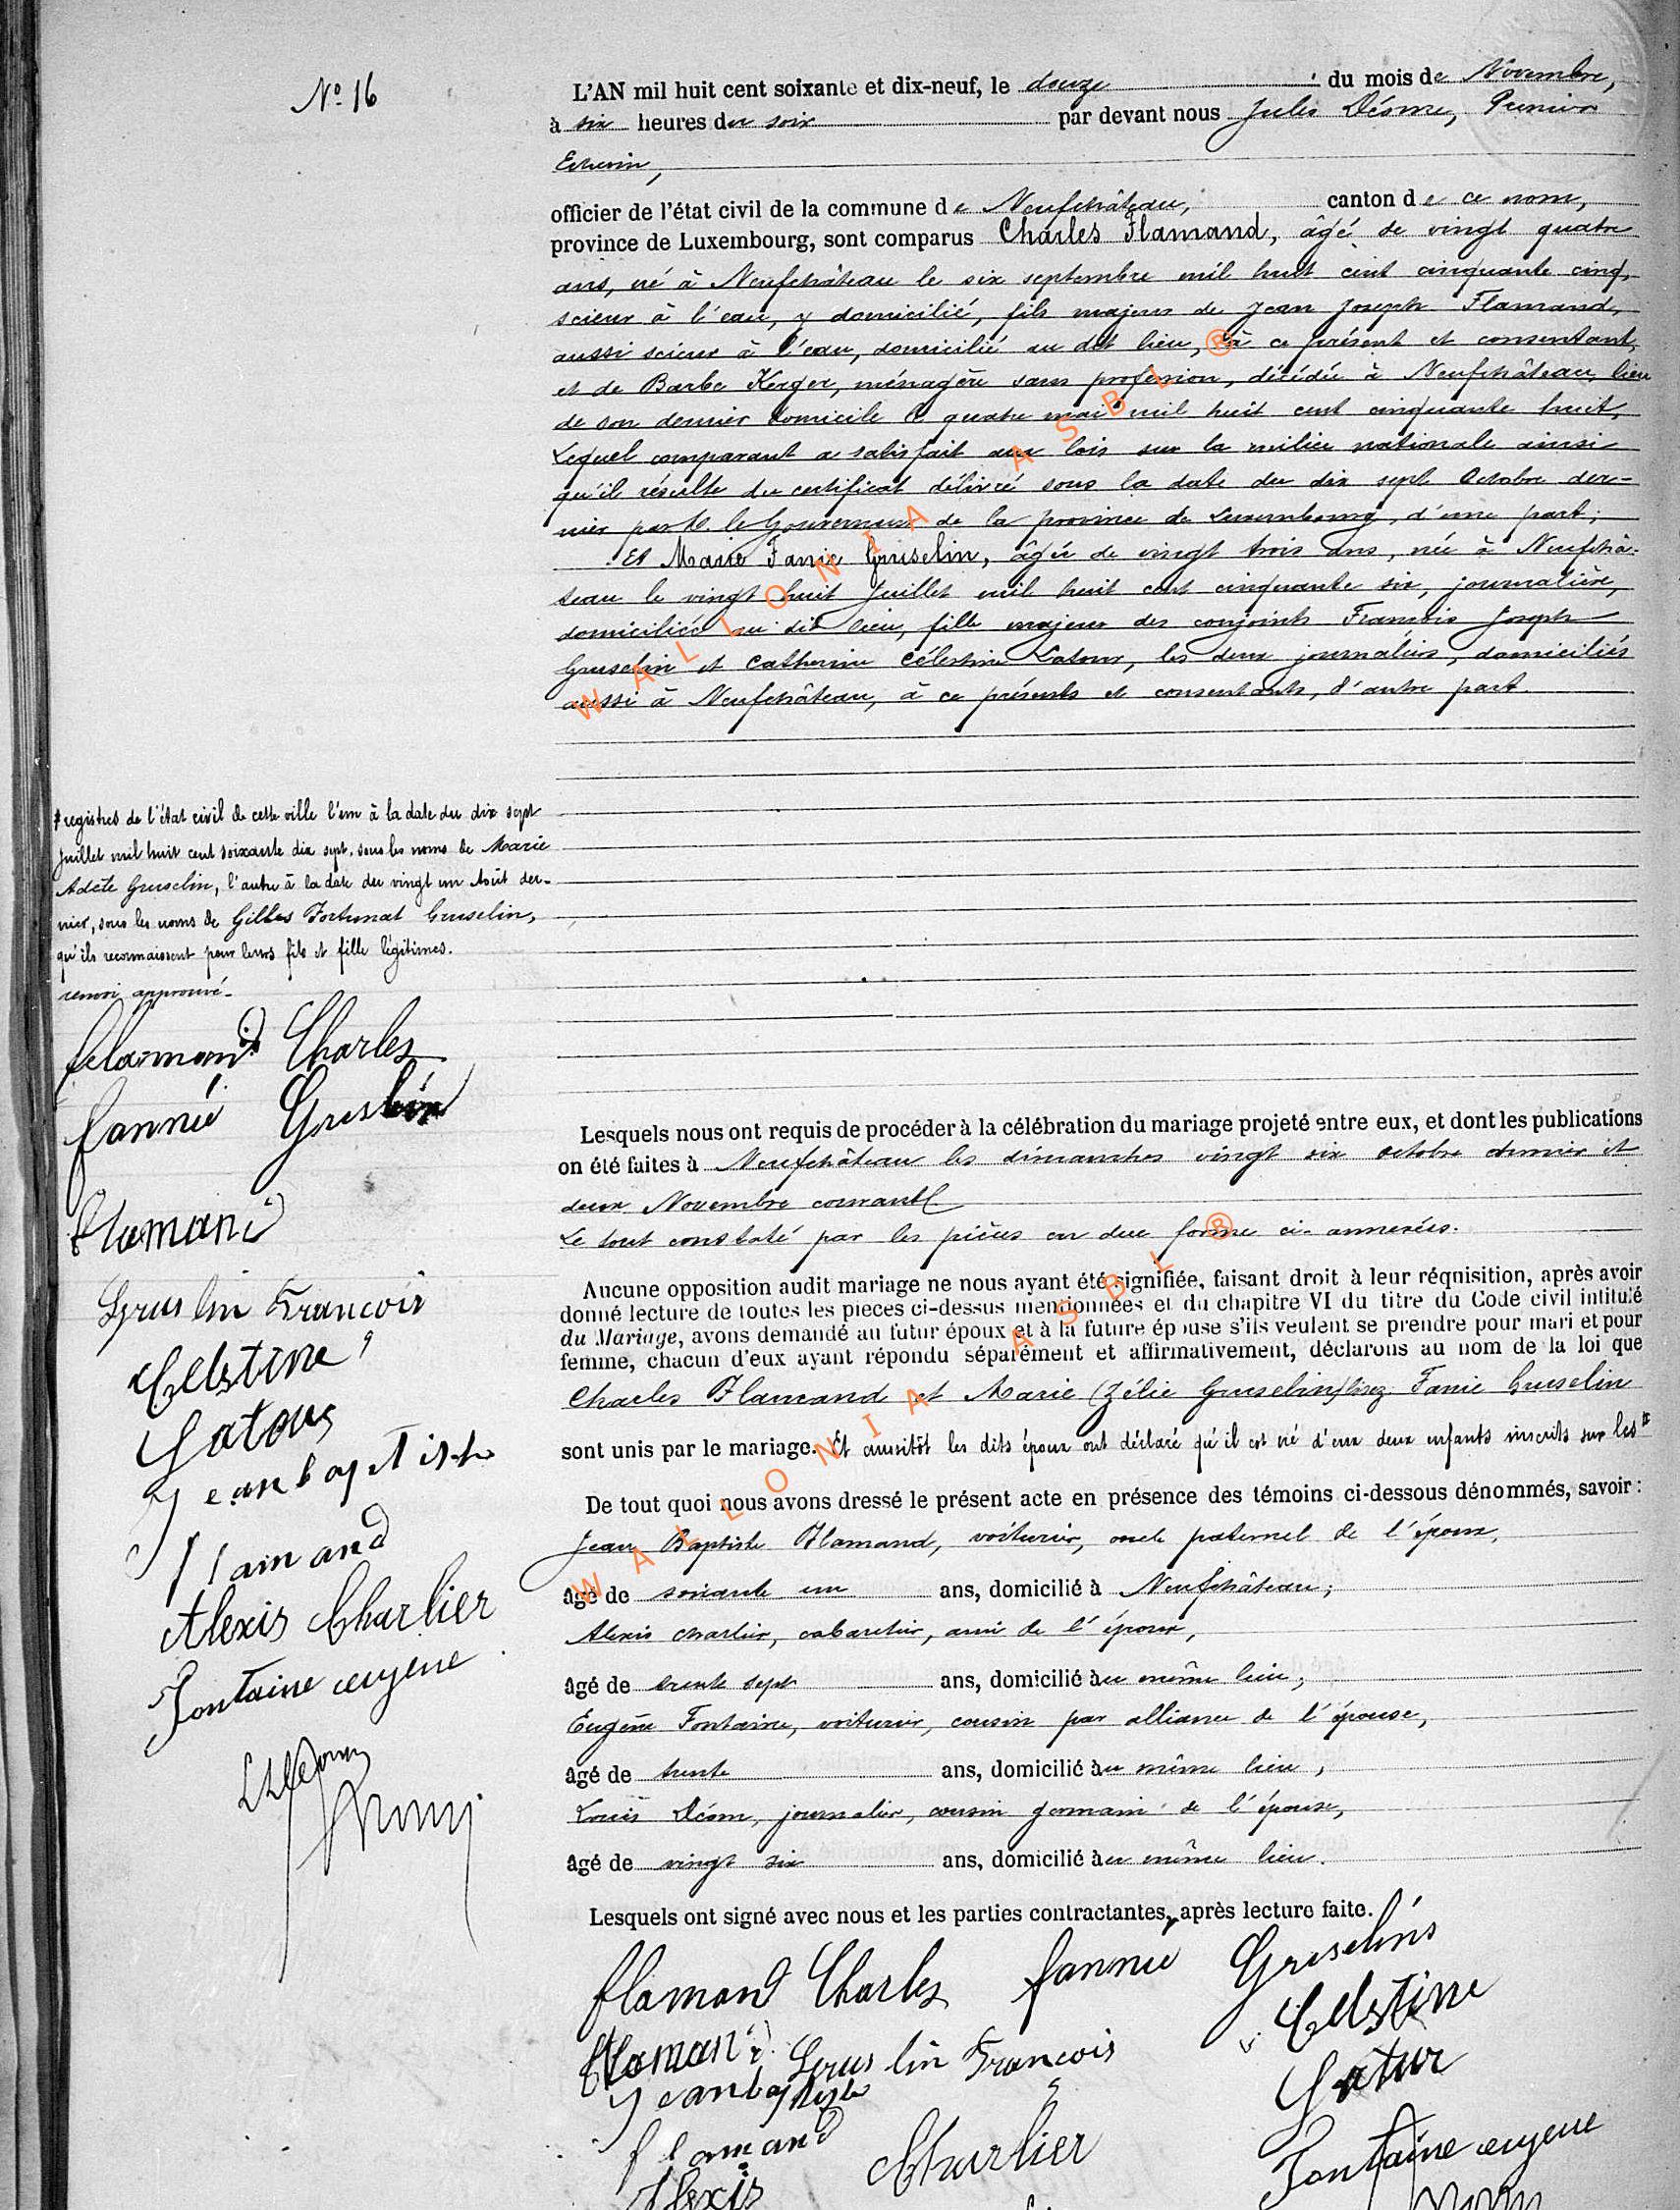 Nº 16
L'AN mil huit cent soixante et dix-neuf, le douze du mois de Novembre,
à six heures du soir par devant nous Jules Désome, Premier
Echevin,
officier de l'état civil de la commune de Neufchâteau, canton de ce nom,
province de Luxembourg, sont comparus Charles Flamand, âgé de vingt quatre
ans, né à Neufchâteau le six septembre mil huit cent cinquante cinq,
scieur à l'eau, y domicilié, fils majeur de Jean Joseph Flamand,
aussi scieur à l'eau, domicilié au dit lieu, à ce présent et consentant,
et de Barbe Kerger, ménagère sans profession, décédée à Neufchâteau, lieu
de son dernier domicile le quatre mai mil huit cent cinquante huit,
Lequel comparant a satisfait aux lois sur la milice nationale ainsi
qu'il résulte du certificat délivré sous la date du dix sept Octobre der-
nier par M. le Gouverneur de la province de Luxembourg, d'une part;
Et Marie Fanie Gruselin, âgée de vingt trois ans, née à Neufchâ-
teau le vingt huit Juillet mil huit cent cinquante six, journalière,
domiciliée au dit lieu, fille majeure des conjoints François Joseph
Gruselin et Catherine Célestine Latour, les deux journaliers, domiciliés
aussi à Neufchâteau, à ce présents et consentants, d'autre part.
WALLONIA ASBL ®
registres de l'état civil de cette ville l'un à la date du dix sept
Juillet mil huit cent soixante dix sept, sous les noms de Marie
Adèle Gruselin, l'autre à la date du vingt un Août der-
nier, sous les noms de Gilles Fortunat Gruselin,
qu'ils reconnaissent pour leurs fils et fille légitimes.
renvoi approuvé.
flamand Charles
fannie Gruslin
flamand
Gruslin Francois
Celstine
Latour
Jean baptiste
flamand
Alexis Charlier
Fontaine eugene
Lesquels nous ont requis de procéder à la célébration du mariage projeté entre eux, et dont les publications
on été faites à Neufchâteau les dimanches vingt six octobre dernier et
deux Novembre courant
Le tout constaté par les pièces en due forme ci-annexées.
Aucune opposition audit mariage ne nous ayant été signifiée, faisant droit à leur réquisition, après avoir
donné lecture de toutes les pièces ci-dessus mentionnées et du chapitre VI du titre du Code civil intitulé
du Mariage, avons demandé au futur époux et à la future épouse s'ils veulent se prendre pour mari et pour
femme, chacun d'eux ayant répondu séparément et affirmativement, déclarons au nom de la loi que
Charles Flamand et Marie (Zélie Gruselin) lisez Fanie Gruselin
sont unis par le mariage. Et aussitôt les dits époux ont déclaré qu'il est né d'eux deux enfants inscrits sur les
De tout quoi nous avons dressé le présent acte en présence des témoins ci-dessous dénommés, savoir :
Jean Baptiste Flamand, voiturier, oncle paternel de l'époux,
âgé de soixante un ans, domicilié à Neufchâteau;
Alexis Charlier, cabaretier, ami de l'époux,
âgé de trente sept ans, domicilié au même lieu;
Eugène Fontaine, voiturier, cousin par alliance de l'épouse,
âgé de trente ans, domicilié au même lieu,
Louis Déom, journalier, cousin germain de l'épouse,
âgé de vingt six ans, domicilié au même lieu.
WALLONIA ASBL ®
Lesquels ont signé avec nous et les parties contractantes, après lecture faite.
flamand Charles fannie Gruselins
flamand Gruslin Francois Celstine
Jean baptiste Latur
flamand Charlier Fontaine eugene
Alexis